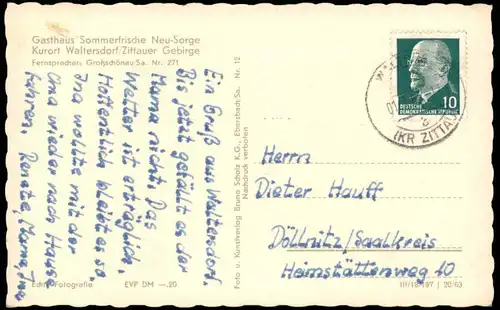 Gasthaus Sommerfrische Neu-Sorge
Kurort Waltersdorf/Zittauer Gebirge
Fernsprecher: Großschönau/Sa. Nr. 271
Ein Gruß aus Waltersdorf.
Bis jetzt gefällt es der
Mama nicht. Das
Wetter ist erträglich,
Hoffentlich bleibt es so.
Ina wollte mit der
Oma wieder nach Hause
fahren. Renate, Mama, Ina
Echte Fotografie EVP DM —.20
Foto u. Kunstverlag Bruno Scholz K.G., Ebersbach/Sa. Nr. 12
Nachdruck verboten
DEUTSCHE
DEMOKRATISCHE REPUBLIK
10
(KR ZITTAU
Herrn
Dieter Hauff
Döllnitz/Saalkreis
Heimstättenweg 10
III/18/197 | 20/63